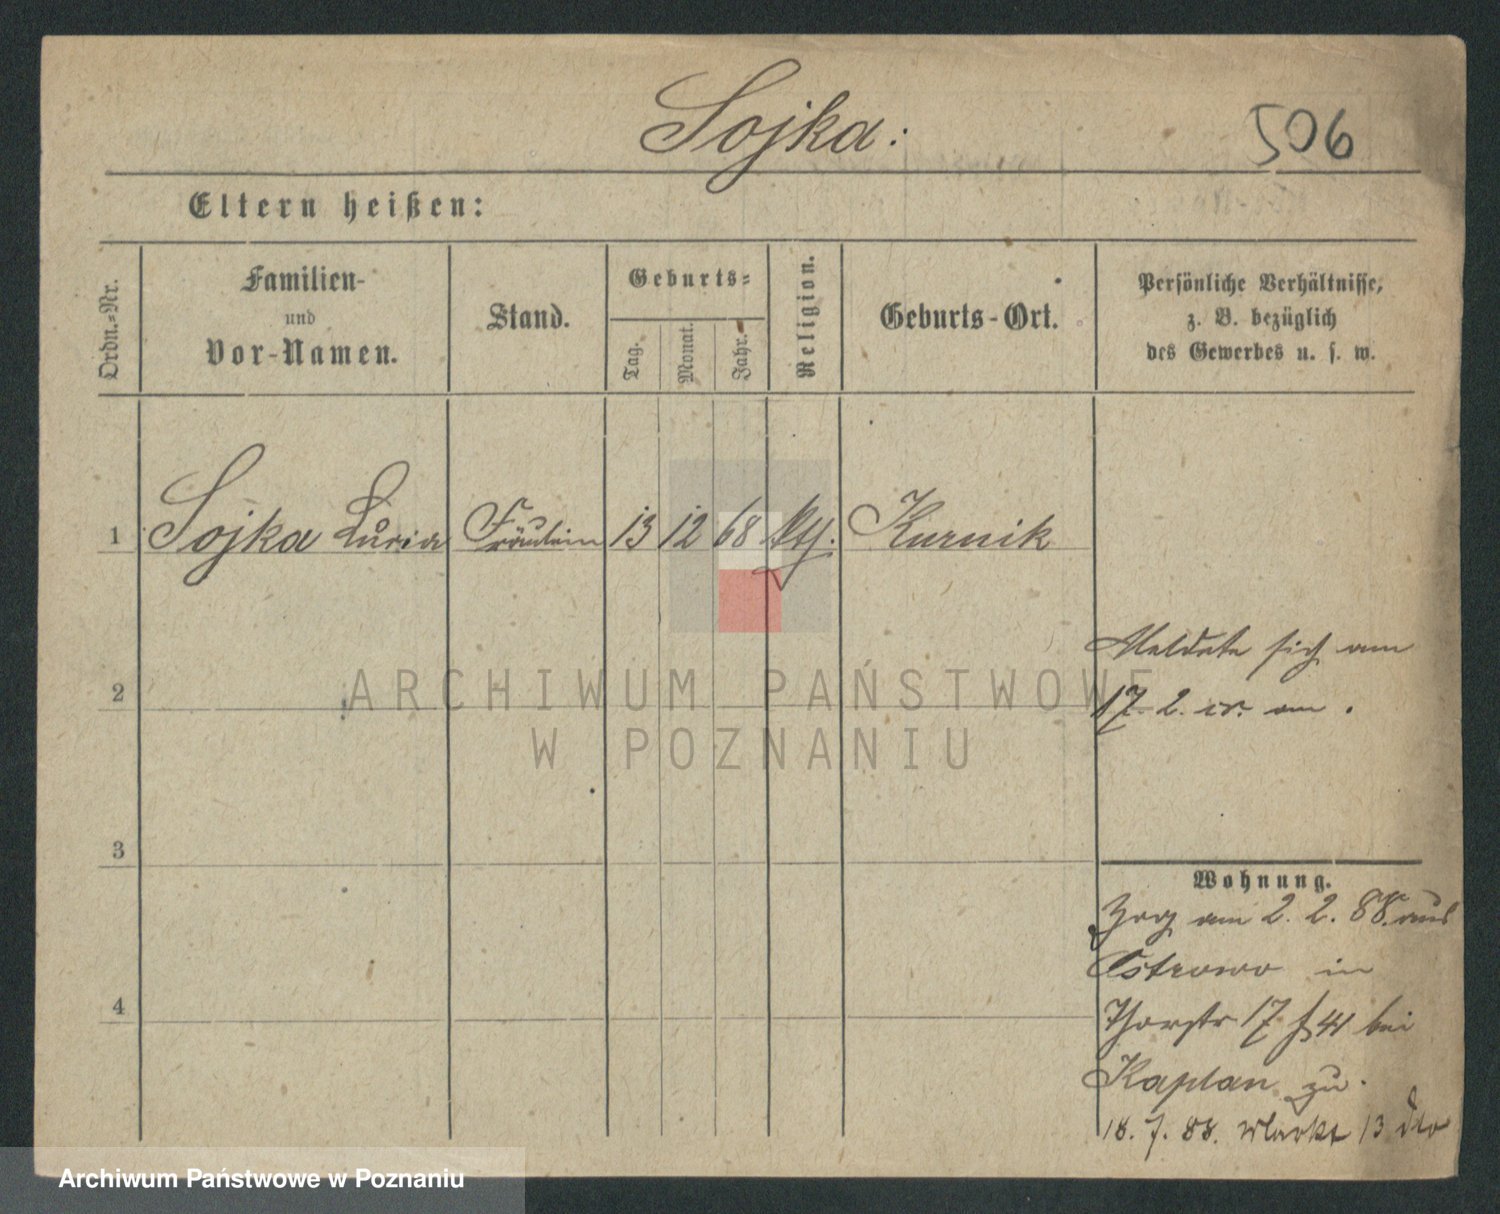 Sojka:
506
Eltern heißen:
Ordn.-Nr.
Familien-
und
Vor-Namen.
Stand.
Geburts-
Tag.
Monat.
Jahr.
Religion.
Geburts-Ort.
Persönliche Verhältnisse,
z. B. bezüglich
des Gewerbes u. s. w.
1 Sojka Fräulein 13 12 68 Kurnik
Meldete sich am
2
17. 2. cr. an.
ARCHIWUM PAŃSTWOWE
W POZNANIU
3
Wohnung.
Zog am 2. 2. 88. aus
Ostrowo in
4
Thorstr 17 bei
Kaplan zu.
18. 7. 88. Markt 13
Archiwum Państwowe w Poznaniu